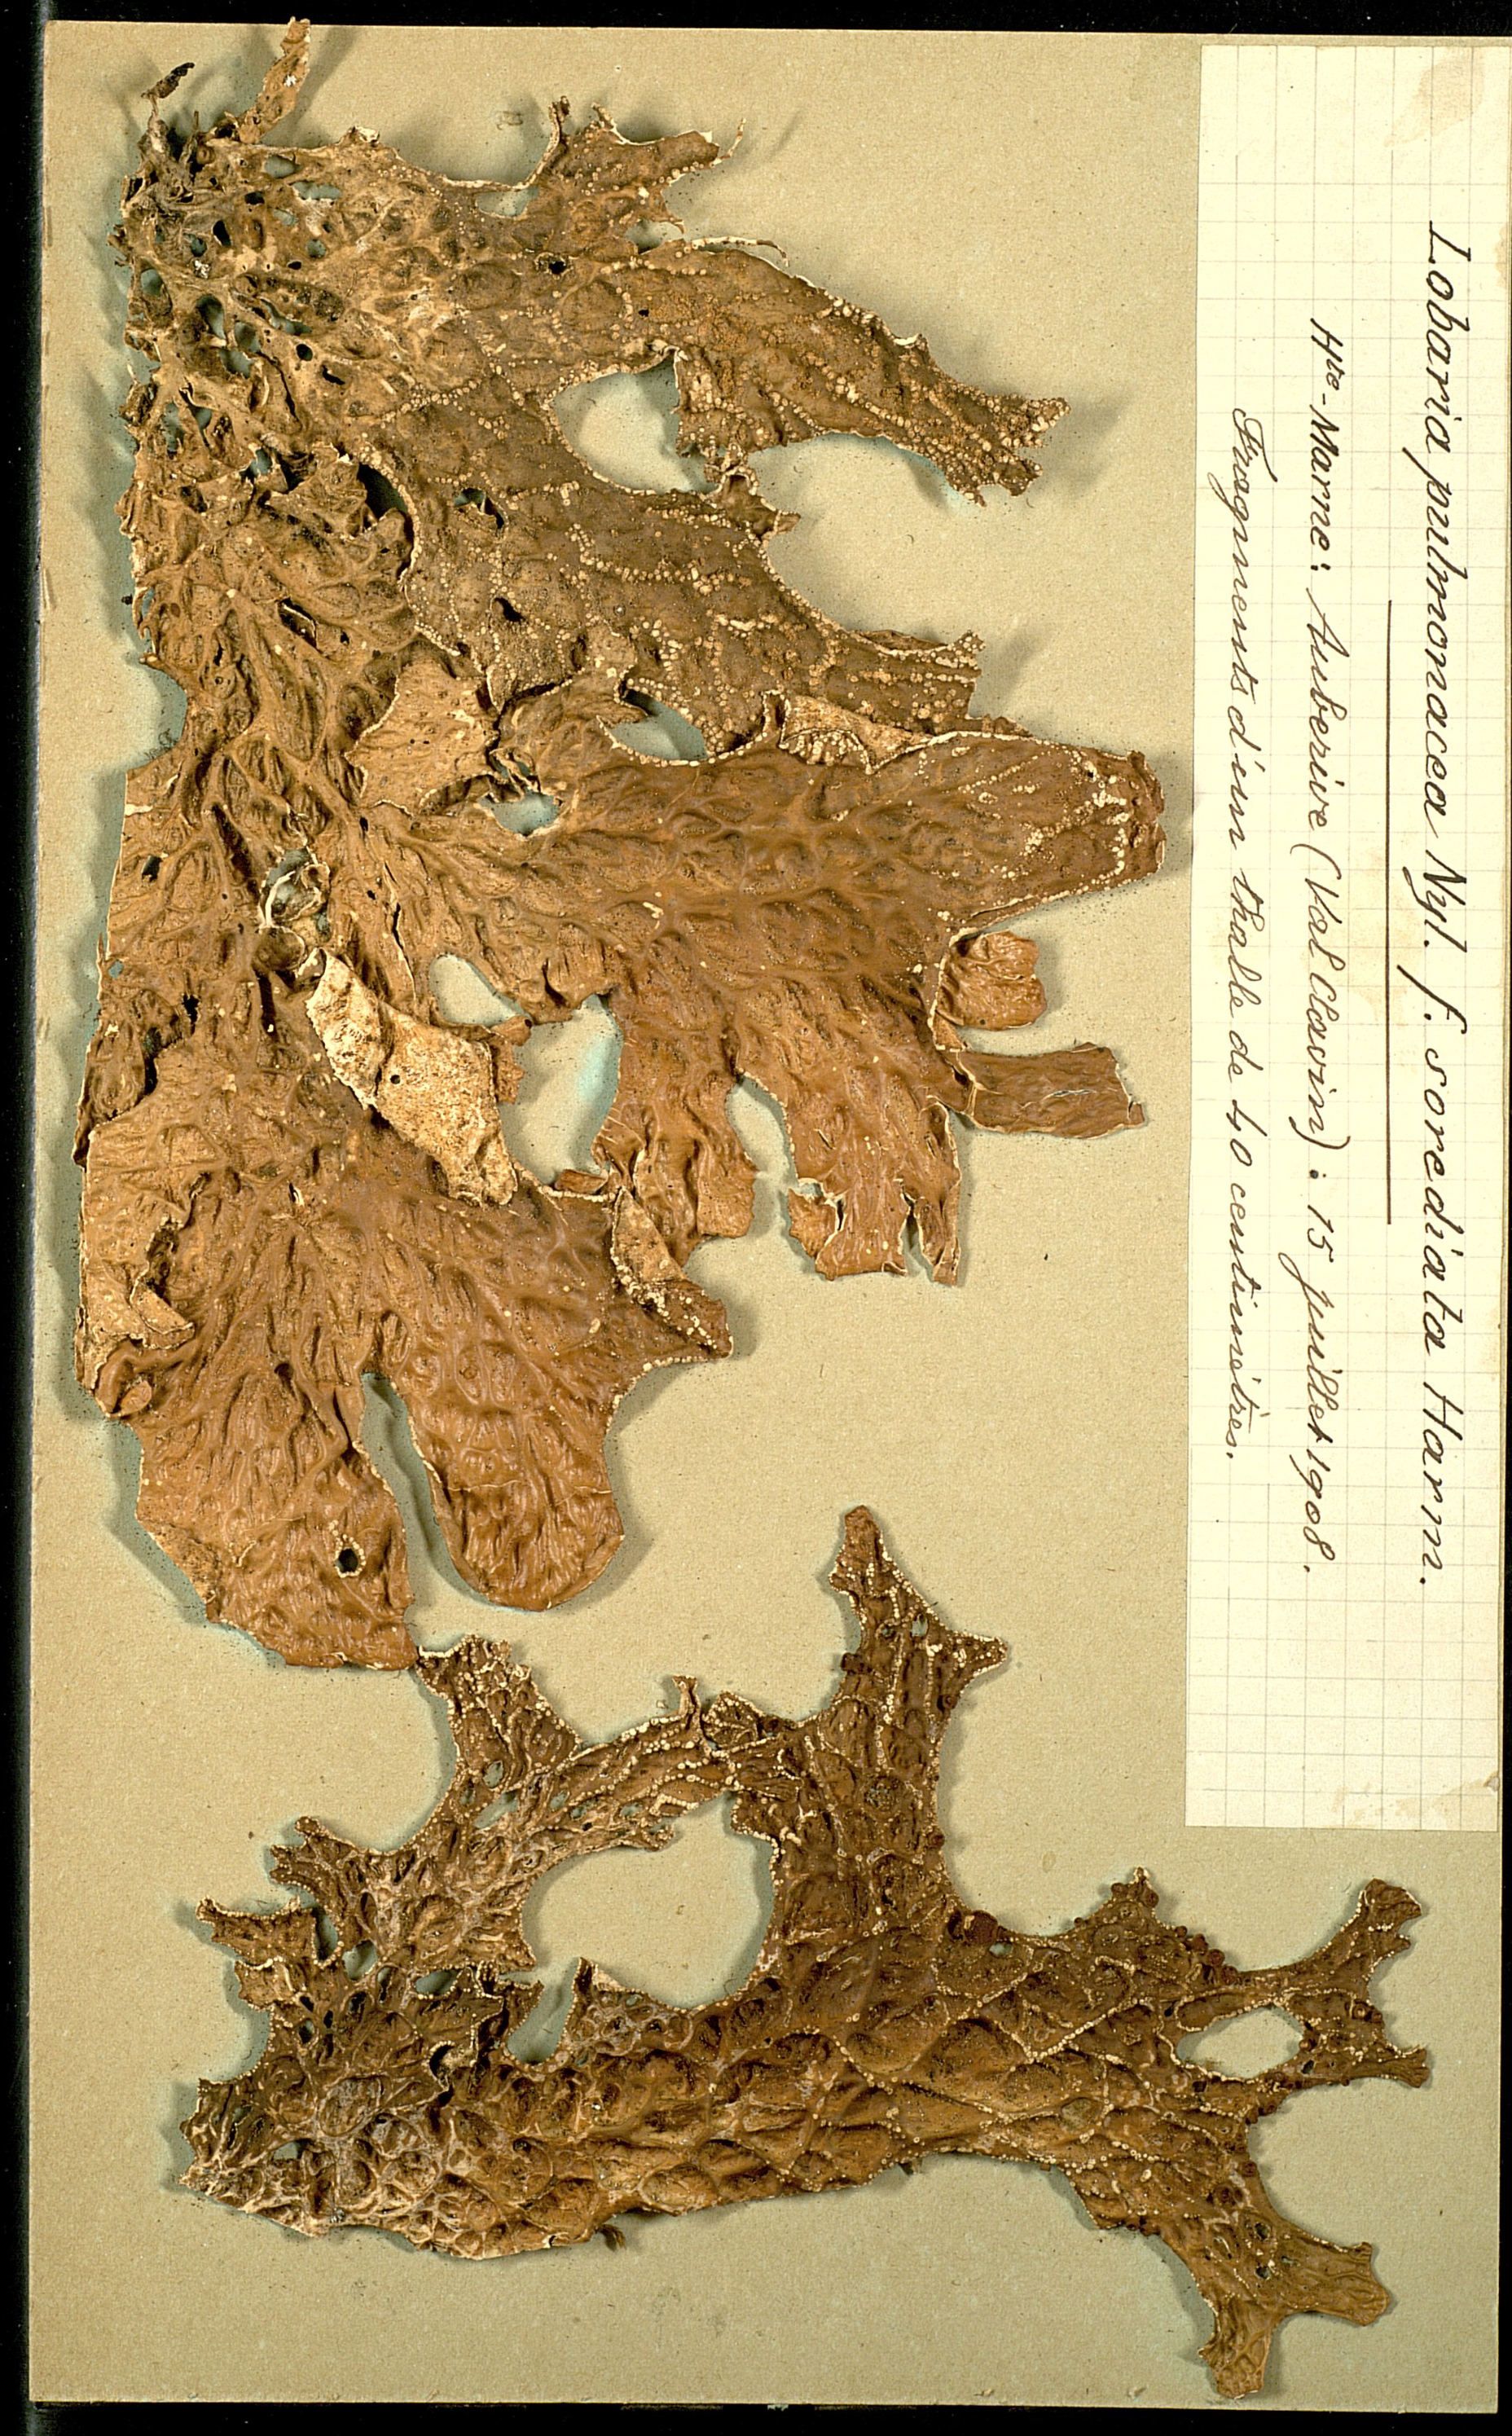 Lobaria pulmonacea Nyl. f. sorediata Harm.
Hte-Marne: Auberive (Val Clavin): 15 juillet 1908.
Fragments d'un thalle de 40 centimètres.